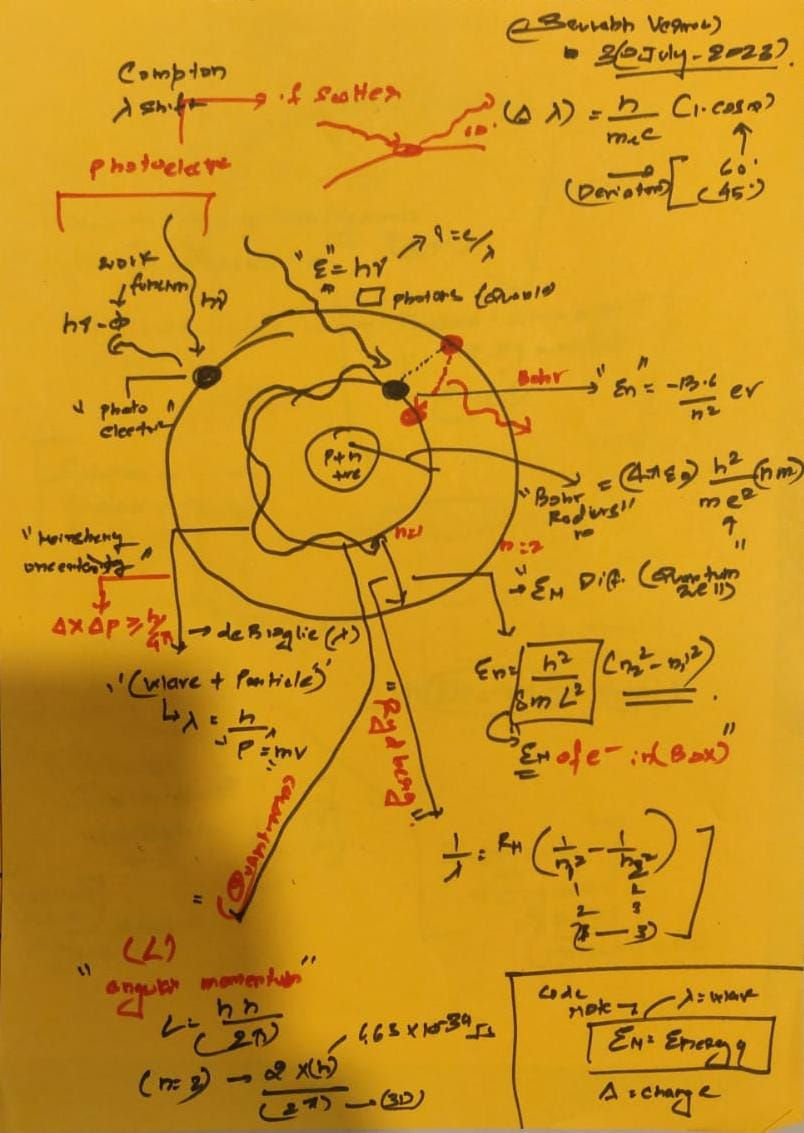 (Saurabh Verma)
20 July - 2023).
Compton
λ shift → .f scatter
(Δ λ) = h/mₑc (1-cosθ)
(Deviation) [ 60°
(45°)
Photoelece
work
function
hν
hν-ϕ
" photo
electric "
"E" = hν → ν=c/λ
□ photons (Quanta)
Bohr → "En" = -13.6/n² ev
P+n
+ve
"Bohr
Radius" = (4πε₀) h²/me² (nm)
n=1
n=2
"Heinsberg
uncertainity"
ΔxΔp ≥ h/4π
→ de Broglie (λ)
"(wave + Particle)"
↳ λ = h/P
P=mv
→ EN Dif. (Quantum
well)"
En = h²/8mL² (n₂² - n₁²)
EN of e⁻ in (Box)"
"Rydberg"
1/λ = RH (1/n₁² - 1/n₂²)
2 3
=
(L)
"angular momentum"
L = nh/(2π)
(n=2) → 2×(h)/(2π) → (3D)
6.63 × 10⁻³⁴ Js
Code
Note → λ = wave
EN = Energy
Δ = change